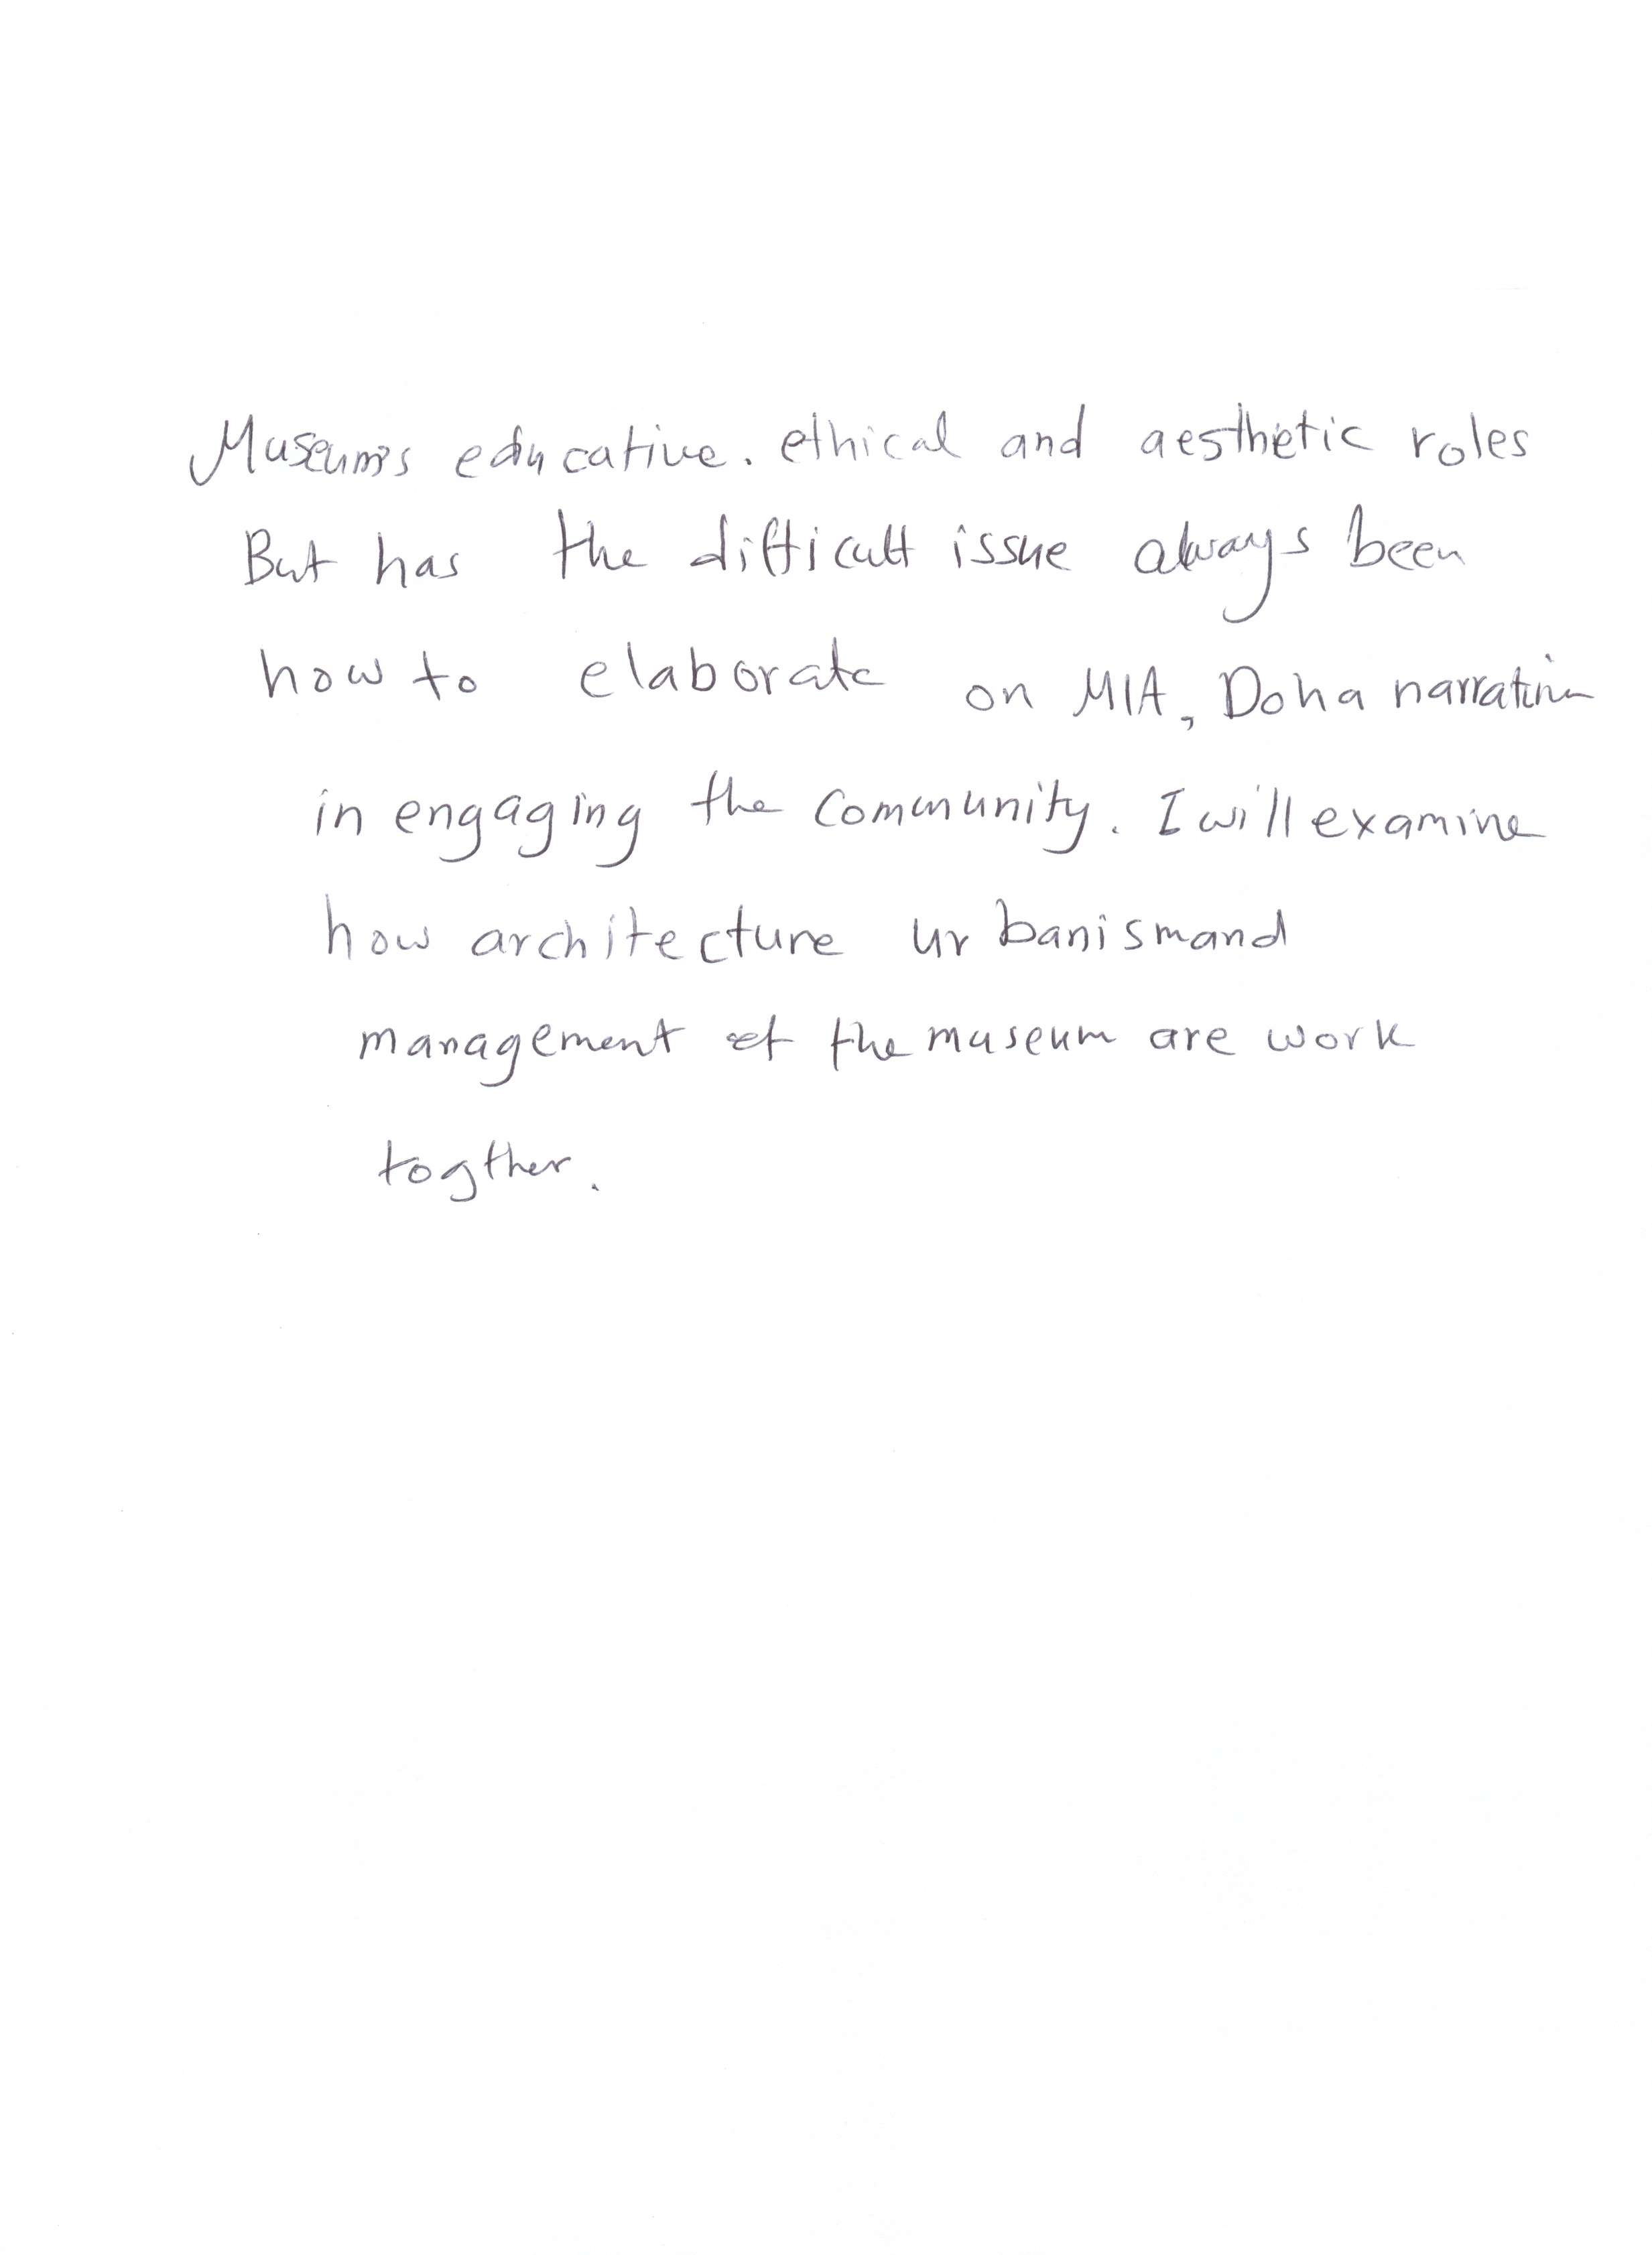 Museum's educative. ethical and aesthetic roles
But has the difficult issue always been
how to elaborate on MIA, Doha narrative
in engaging the Community. I will examine
how architecture urbanism and
management of the museum are work
togther.